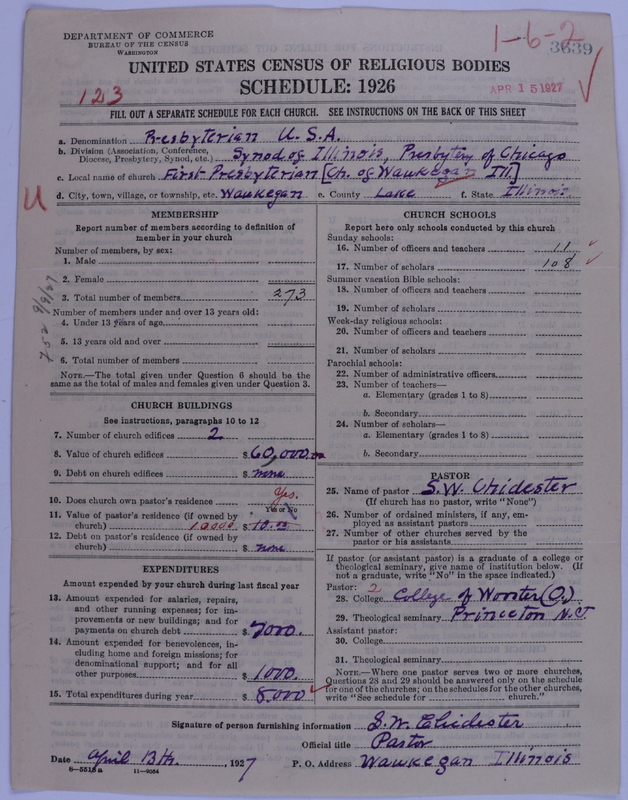 DEPARTMENT OF COMMERCE
BUREAU OF THE CENSUS
WASHINGTON
1-6-2
3639
UNITED STATES CENSUS OF RELIGIOUS BODIES
SCHEDULE: 1926
123
APR 15 1927
FILL OUT A SEPARATE SCHEDULE FOR EACH CHURCH. SEE INSTRUCTIONS ON THE BACK OF THIS SHEET
a. Denomination Presbyterian U.S.A.
b. Division (Association, Conference, Diocese, Presbytery, Synod, etc.) Synod of Illinois, Presbytery of Chicago
c. Local name of church First Presbyterian [Ch. of Waukegan Ill.]
d. City, town, village, or township, etc. Waukegan e. County Lake f. State Illinois.
U
MEMBERSHIP
Report number of members according to definition of
member in your church
Number of members, by sex:
1. Male
2. Female
3. Total number of members 273
Number of members under and over 13 years old:
4. Under 13 years of age
5. 13 years old and over
6. Total number of members
NOTE.—The total given under Question 6 should be the
same as the total of males and females given under Question 3.
CHURCH BUILDINGS
See instructions, paragraphs 10 to 12
7. Number of church edifices 2
8. Value of church edifices $ 60,000.00
9. Debt on church edifices $ none
10. Does church own pastor's residence Yes.
Yes or No
11. Value of pastor's residence (if owned by
church) 10000 $ 10.00
12. Debt on pastor's residence (if owned by
church) $ none
EXPENDITURES
Amount expended by your church during last fiscal year
13. Amount expended for salaries, repairs,
and other running expenses; for im-
provements or new buildings; and for
payments on church debt $ 7000.
14. Amount expended for benevolences, in-
cluding home and foreign missions; for
denominational support; and for all
other purposes $ 1000.
15. Total expenditures during year $ 8000
CHURCH SCHOOLS
Report here only schools conducted by this church
Sunday schools:
16. Number of officers and teachers 11
17. Number of scholars 108
Summer vacation Bible schools:
18. Number of officers and teachers
19. Number of scholars
Week-day religious schools:
20. Number of officers and teachers
21. Number of scholars
Parochial schools:
22. Number of administrative officers
23. Number of teachers—
a. Elementary (grades 1 to 8)
b. Secondary
24. Number of scholars—
a. Elementary (grades 1 to 8)
b. Secondary
PASTOR
25. Name of pastor S.W. Chidester
(If church has no pastor, write "None")
26. Number of ordained ministers, if any, em-
ployed as assistant pastors
27. Number of other churches served by the
pastor or his assistants
If pastor (or assistant pastor) is a graduate of a college or
theological seminary, give name of institution below. (If
not a graduate, write "No" in the space indicated.)
Pastor: 2
28. College College of Wooster (O.)
29. Theological seminary Princeton N.J.
Assistant pastor:
30. College
31. Theological seminary
NOTE.—Where one pastor serves two or more churches,
Questions 28 and 29 should be answered only on the schedule
for one of the churches; on the schedules for the other churches,
write "See schedule for church."
Signature of person furnishing information S. W. Chidester
Official title Pastor
Date April 13th, 1927 P. O. Address Waukegan Illinois
8—5513 a 11—9034